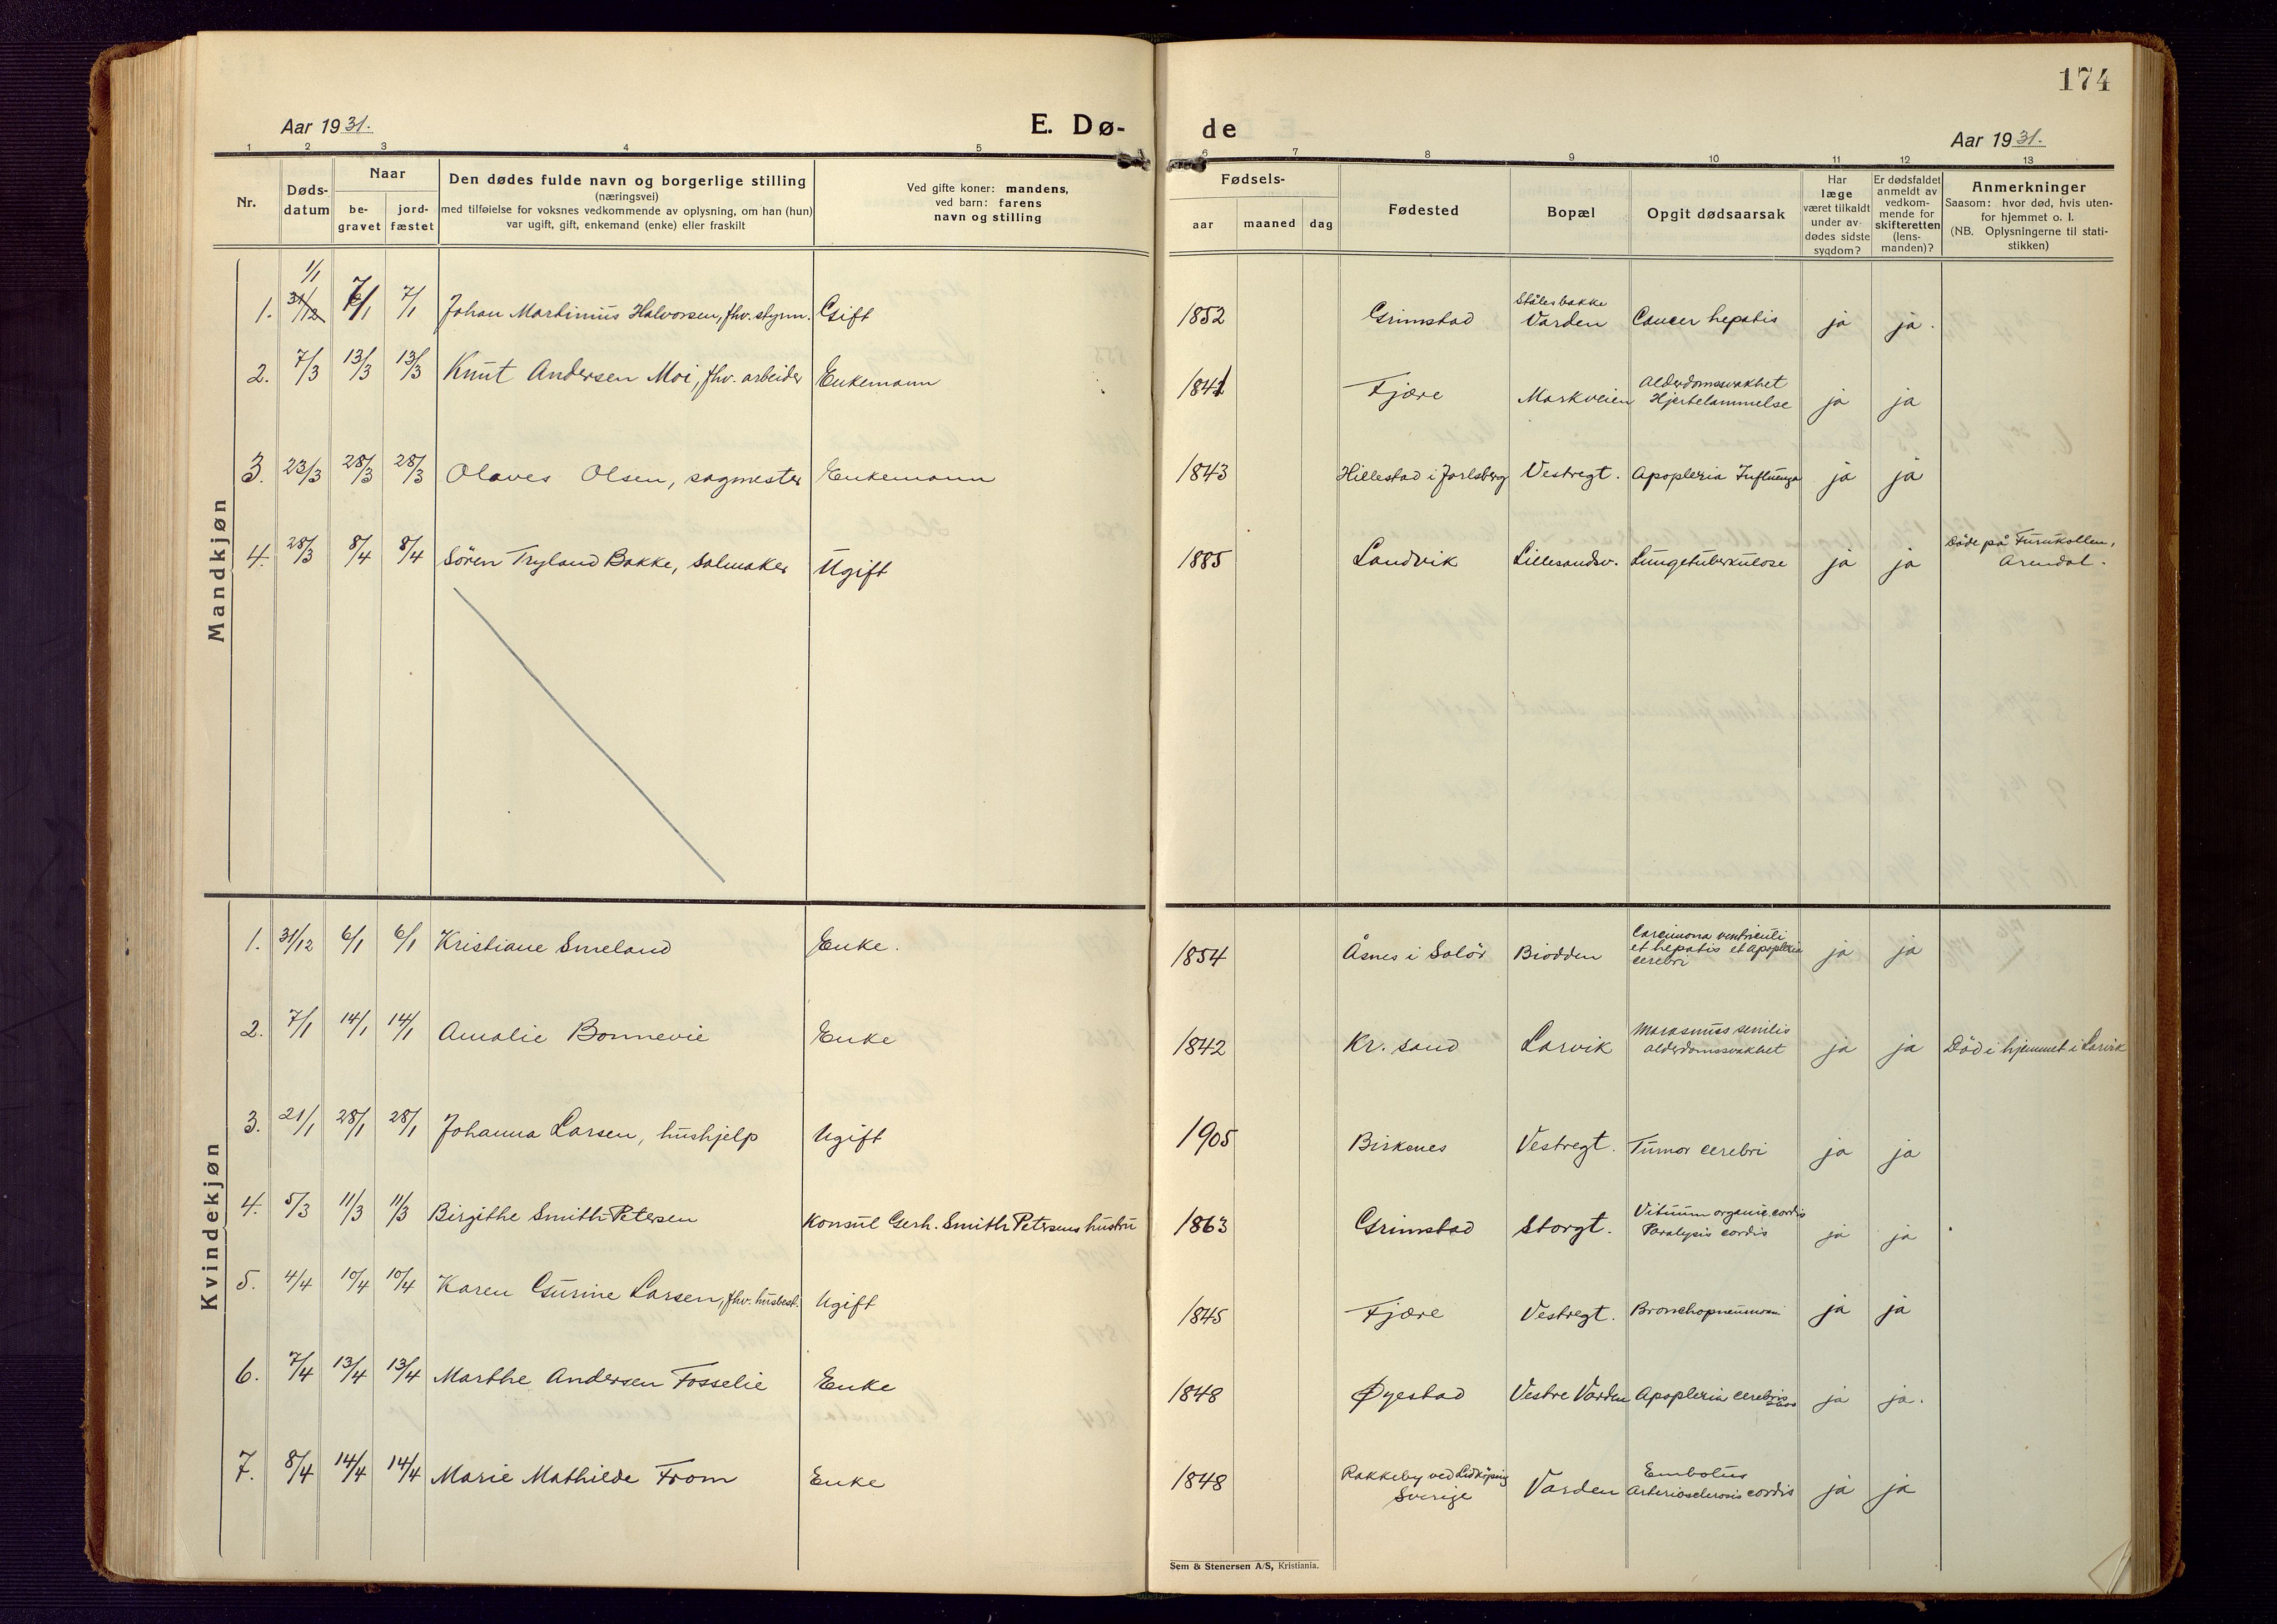 174
Aar 1931.
E. Dø-
de
Aar 1931.
1 2 3 4 5 6 7 8 9 10 11 12 13
Nr.
Døds-
datum
Naar
be-
gravet
jord-
fæstet
Den dødes fulde navn og borgerlige stilling
(næringsvei)
med tilføielse for voksnes vedkommende av oplysning, om han (hun)
var ugift, gift, enkemand (enke) eller fraskilt
Ved gifte koner: mandens,
ved barn: farens
navn og stilling
Fødsels-
aar maaned dag
Fødested
Bopæl
Opgit dødsaarsak
Har
læge
været tilkaldt
under av-
dødes sidste
sygdom?
Er dødsfaldet
anmeldt av
vedkom-
mende for
skifteretten
(lens-
manden)?
Anmerkninger
Saasom: hvor død, hvis uten-
for hjemmet o. l.
(NB. Oplysningerne til stati-
stikken)
Mandkjøn
1/1
1. 31/12 7/1 7/1 Johan Martinius Halvorsen, fhv. styrm. Gift 1852 Grimstad
Stålesbakke
Varden Cancer hepatis ja ja.
2. 7/3 13/3 13/3 Knut Andersen Moi, fhv. arbeider Enkemann 1841 Fjære Markveien
Alderdomssvakhet
Hjertelammelse ja ja
3. 23/3 28/3 28/3 Olaves Olsen, sagmester Enkemann 1843 Hillestad i Jarlsberg Vestregt. Apoplexia Influenza ja ja
4. 28/3 8/4 8/4 Sören Tryland Bakke, salmaker Ugift 1885 Landvik Lillesandsv. Lungetuberkulose ja ja
Döde på Furukollen,
Arendal.
Kvindekjøn
1. 31/12 6/1 6/1 Kristiane Smeland Enke. 1854 Åsnes i Solör Biodden
Carcinoma ventriculi
et hepatis et apoplexia
cerebri ja ja
2. 7/1 14/1 14/1 Amalie Bonnevie Enke 1842 Kr. sand Larvik
Marasmus senilis
alderdomssvakhet ja ja Död i hjemmet i Larvik
3. 21/1 28/1 28/1 Johanna Larsen, hushjelp Ugift 1905 Birkenes Vestregt. Tumor cerebri ja ja
4. 5/3 11/3 11/3 Birgithe Smith Petersen Konsul Gerh. Smith Petersens hustru 1863 Grimstad Storgt.
Vitium organic. cordis
Paralysis cordis ja ja
5. 4/4 10/4 10/4 Karen Gurine Larsen, fhv. husbest. Ugift 1845 Fjære Vestregt. Bronchopneumoni ja ja
6. 7/4 13/4 13/4 Marthe Andersen Fosselie Enke 1848 Øyestad Vestre Varden Apoplexia cerebri ja ja.
7. 8/4 14/4 14/4 Marie Mathilde From Enke 1848
Rakkeby ved Lidköping
Sverige Varden
Embolus
Arteriosclerosis cordis ja ja
Sem & Stenersen A/S, Kristiania.